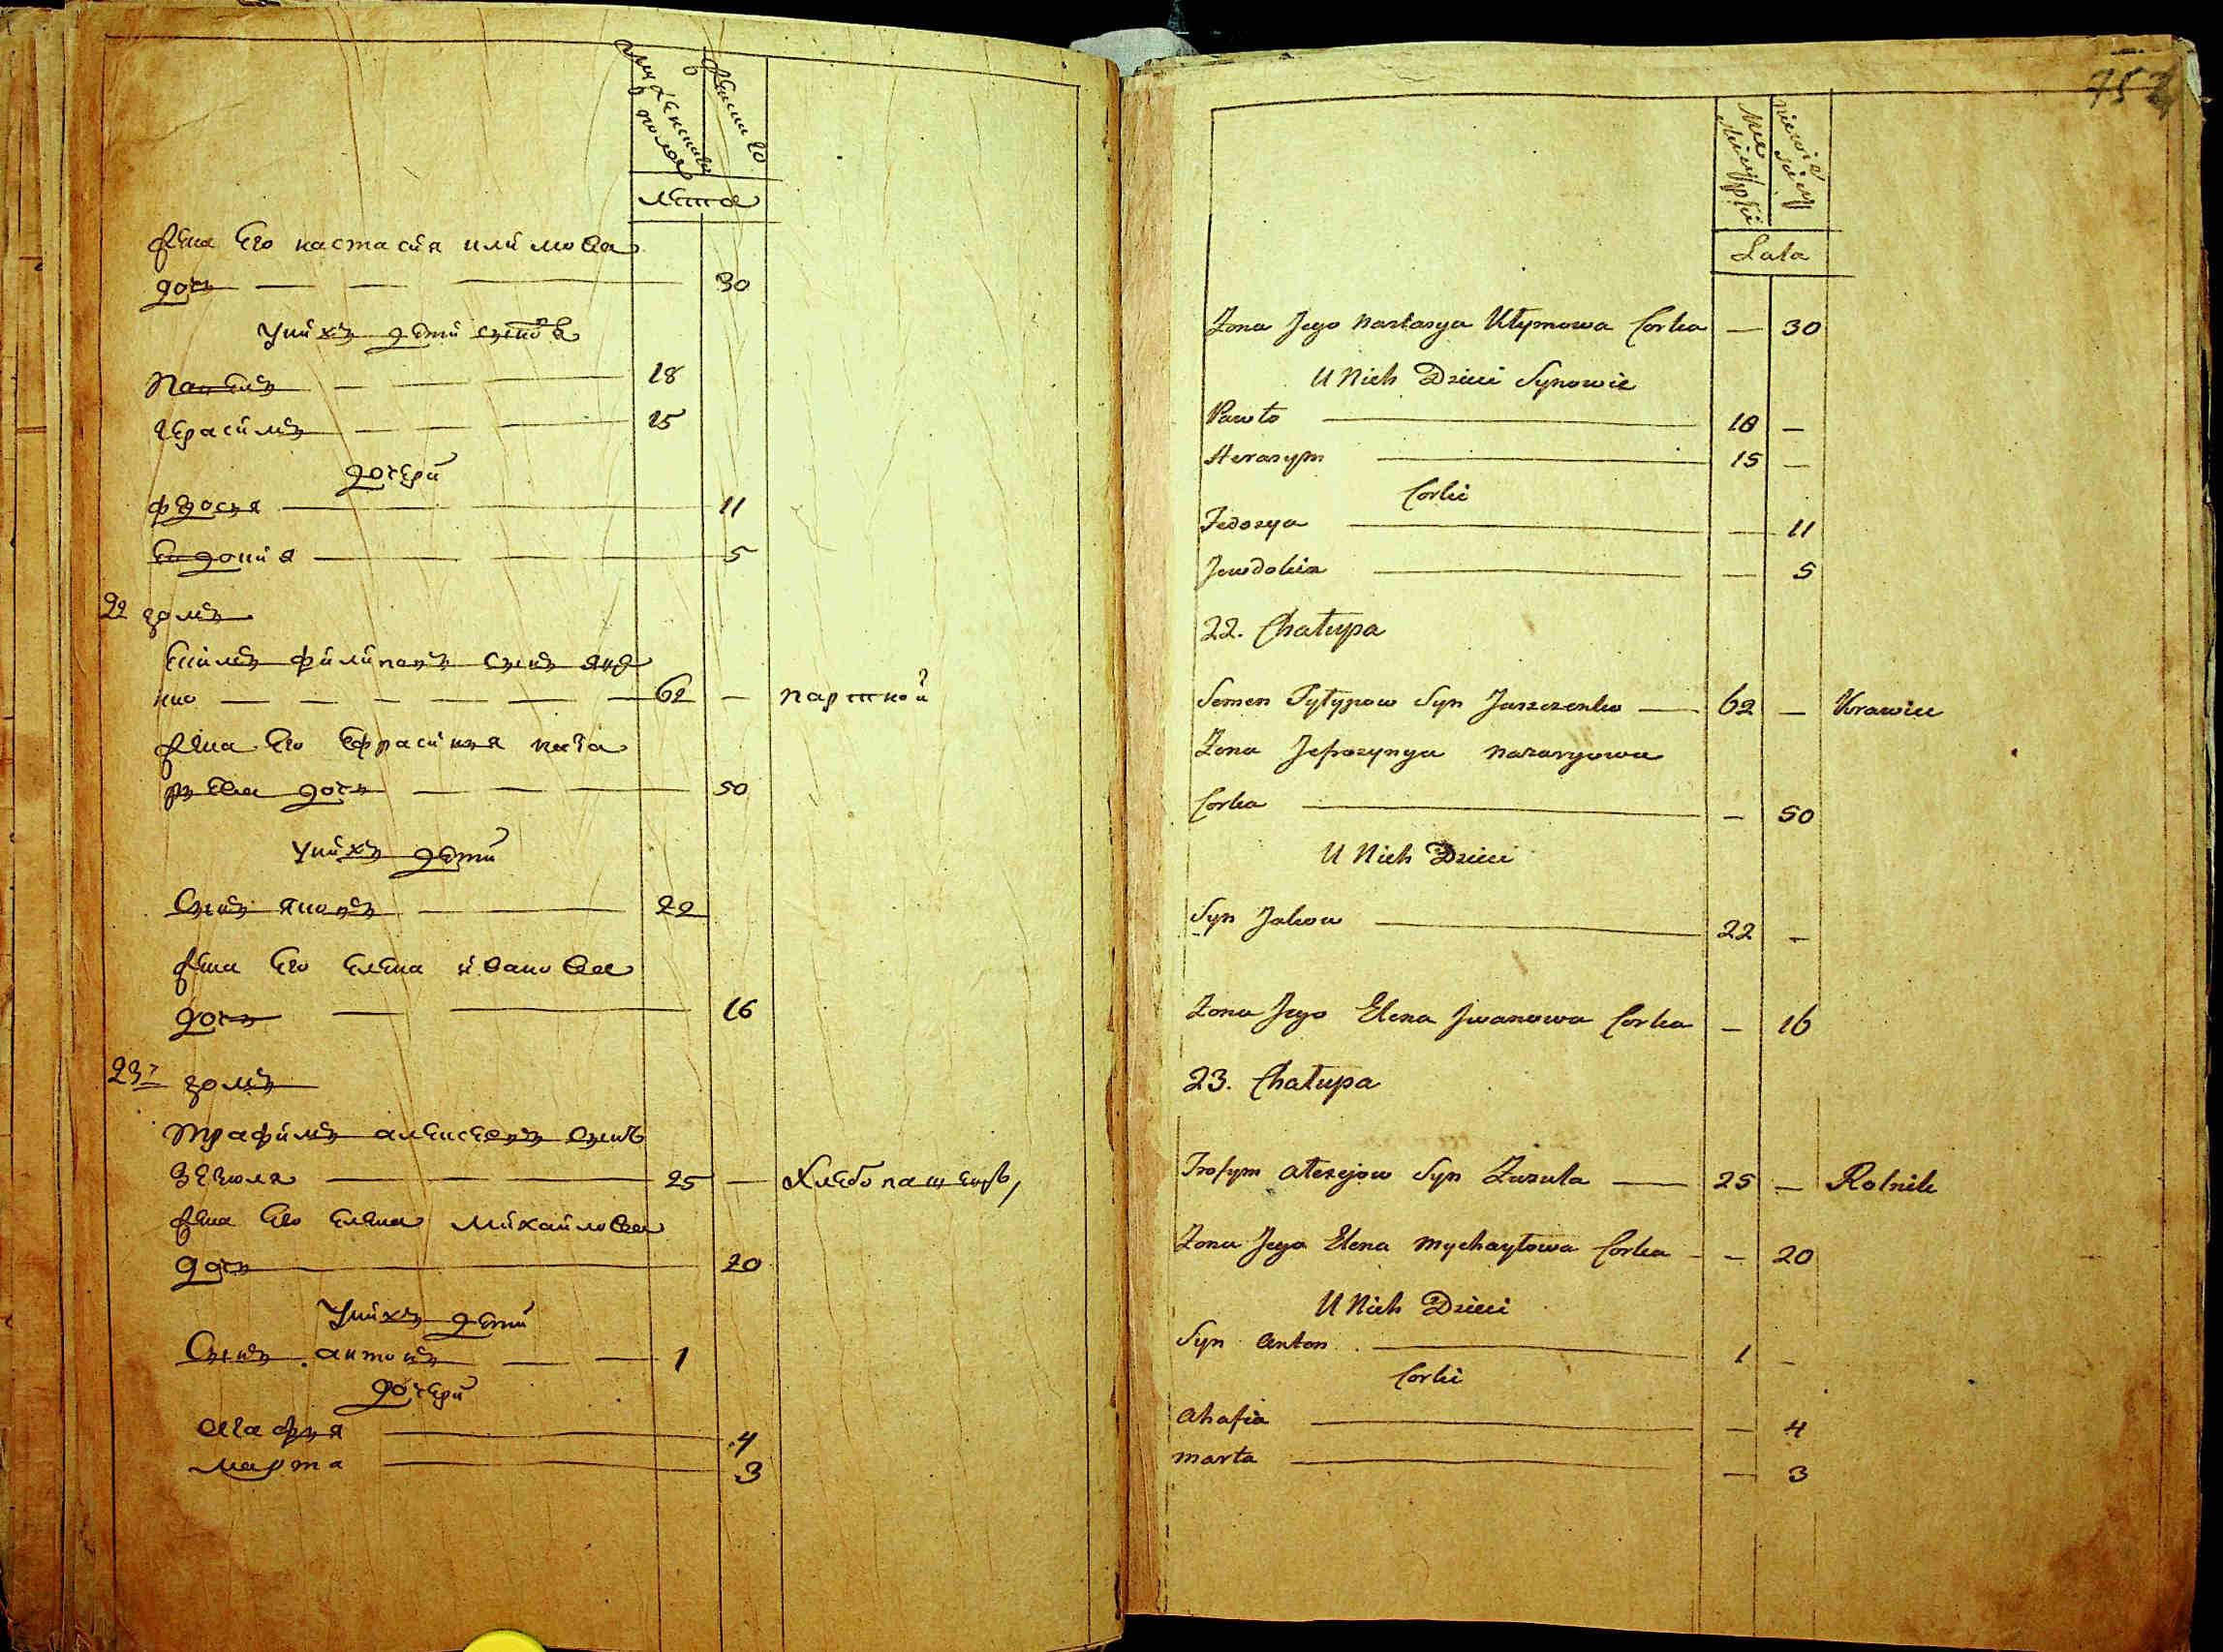 женска
лета
жена его настасия климова
дочь 30
у них дети сынов
павелъ 18
герасимъ 15
дочери
федосия 11
евдокия 5
22 домъ
филиповъ сынъ
62 — портной
жена его ефрасиния наза
рьева дочь 50
у них дети
сынъ яковъ 22
жена его елена иванова
дочь 16
23 домъ
трафимъ алексеевъ сынъ
зезюля 25 — хлебопашецъ
жена его елена михайлова
дочь 20
у них дети
сынъ антонъ 1
дочери
агафия 4
марта 3
752
Męskiej płci
niewieściey
Lata
Zona Jego Nastasya Kłymowa Corka — 30
U Nich Dzieci Synowie
Pawło 18 —
Herasym 15 —
Corki
Fedosya — 11
Jewdokia — 5
22. Chałupa
Semen Pyłypow Syn Jaszczenko — 62 — Krawiec
Zona Jefrozynya Nazaryowa
Corka — 50
U Nich Dzieci
Syn Jakow 22 —
Zona Jego Elena Jwanowa Corka — 16
23. Chałupa
Trofym Alexejow Syn Zazula — 25 — Rolnik
Zona Jego Elena Mychayłowa Corka — 20
U Nich Dzieci
Syn Anton 1 —
Corki
Ahafia — 4
Marta — 3